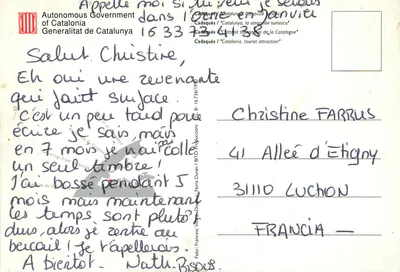 Appelle moi si tu veux je serais
dans l'Orne en Janvier
16 33 73 41 38
Autonomous Government
of Catalonia
Generalitat de Catalunya
Cadaqués / "Catalunya, la atracción turística"
Cadaqués / "Catalonia, tourist attraction"
Salut Christine,
Eh oui une revenante
qui fait surface.
C'est un peu tard pour
écrire je sais, mais
en 7 mois je n'ai collé
un seul timbre!
J'ai bossé pendant 5
mois mais maintenant
les temps sont plutôt
durs, alors je rentre au
bercail! Je t'appellerais.
A bientôt. Nath. Bisous.
Christine FARRUS
41 Alleé d'Etigny
31110 LUCHON
FRANCIA —